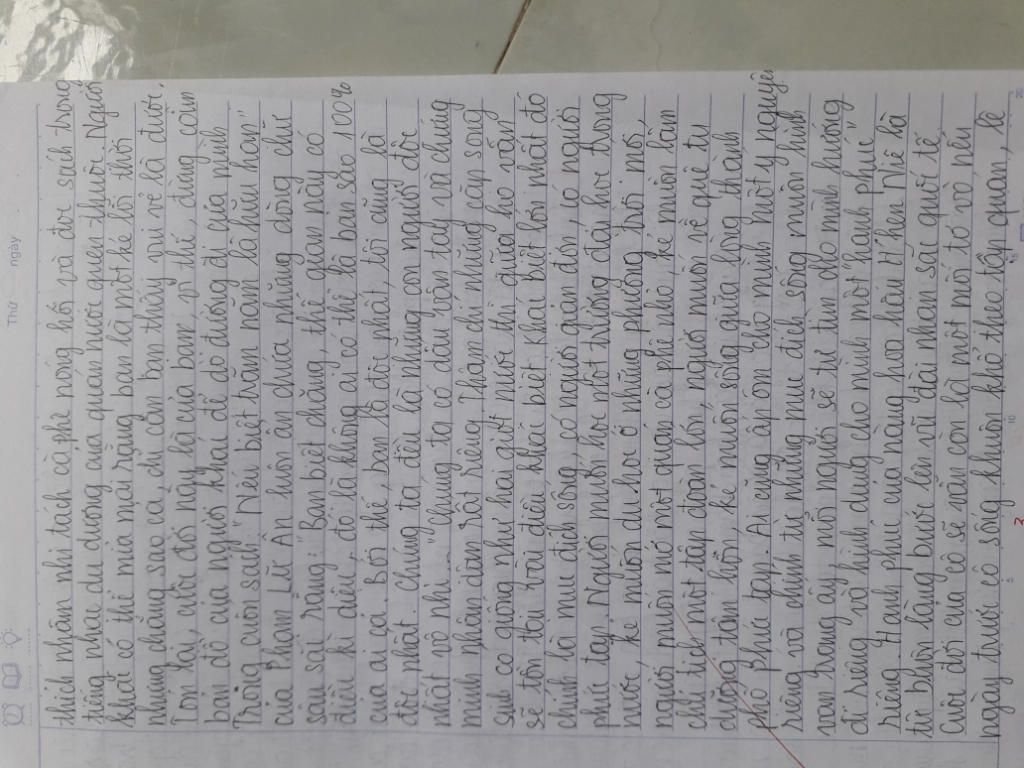 Thứ ngày
thích nhâm nhi tách cà phê nóng hổi và đọc sách trong
tiếng nhạc du dương của quán nước quen thuộc. Người
khác có thể mỉa mai rằng bạn là một kẻ lỗi thời
nhưng chẳng sao cả, dù gì bạn thấy vui vẻ là được.
Tóm lại, cuộc đời này là của bạn vì thế, đừng cầm
bản đồ của người khác để dò đường đi của mình
Trong cuốn sách "Nếu biết trăm năm là hữu hạn"
của Phạm Lữ Ân luôn ẩn chứa những dòng chữ
sâu sắc rằng: "Bạn biết chăng, thế gian này có
điều kì diệu, đó là không ai có thể là bản sao 100%
của ai cả. Bởi thế, bạn là độc nhất, tôi cũng là
độc nhất. Chúng ta đều là những con người độc
nhất vô nhị". Chúng ta có dấu vân tay và chứng
minh nhân dân rất riêng. Thậm chí những cặp song
sinh có giống như hai giọt nước thì giữa họ vẫn
sẽ tồn tại vài điều khác biệt. Khác biệt lớn nhất đó
chính là mục đích sống có người giản đơn, có người
phức tạp. Người muốn học một trường đại học trong
nước, kẻ muốn du học ở những phương trời mới,
người muốn mở một quán cà phê nhỏ, kẻ muốn làm
chủ tịch một tập đoàn lớn, người muốn về quê tu
dưỡng tâm hồn, kẻ muốn sống giữa lòng thành
phố phức tạp. Ai cũng ấp ôm cho mình một ý nguyện
riêng và chính từ những mục đích sống muôn hình
vạn trạng ấy, mỗi người sẽ tự tìm cho mình hướng
đi riêng và hình dung cho mình một "hạnh phúc"
riêng. Hạnh phúc của nàng hoa hậu H'Hen Niê là
từ buôn làng bước lên vũ đài nhan sắc quốc tế
Cuộc đời của cô sẽ vẫn còn là một mớ tơ vò nếu
ngày trước cô sống khuôn khổ theo tập quán, lệ